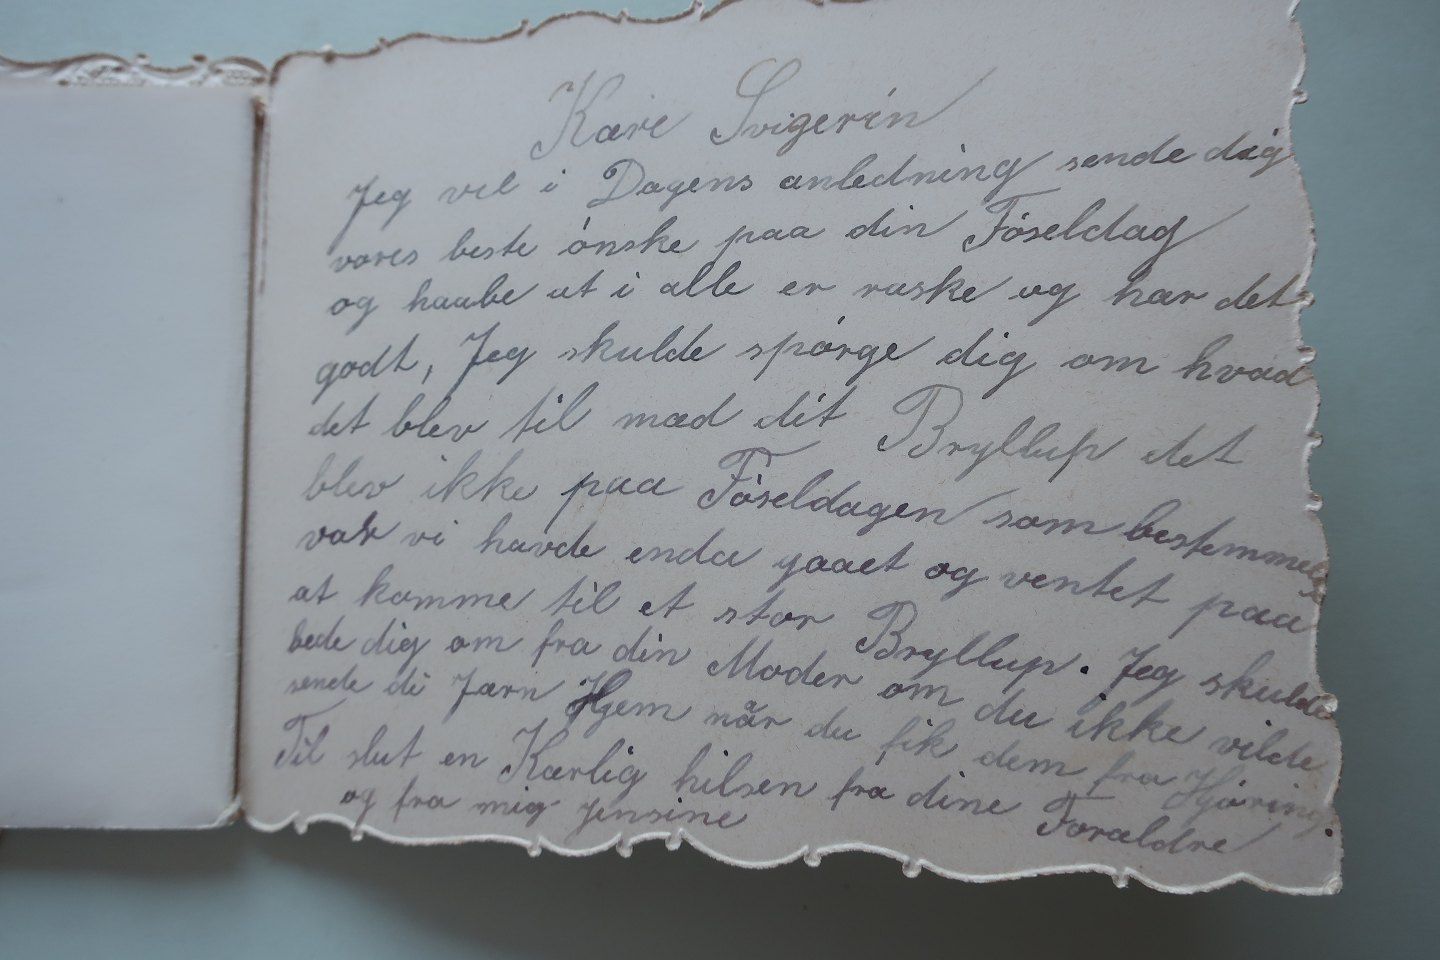 Kære Svigerin
Jeg vil i Dagens anledning sende dig
vores beste ónske paa din Fóseldag
og haabe at i alle er raske og har det
godt, Jeg skulde spórge dig om hvad
det blev til mæd dit Bryllup det
blev ikke paa Fóseldagen som bestemmels
var vi havde enda gaaet og ventet paa
at komme til et stor Bryllup. Jeg skulde
bede dig om fra din Moder om du ikke vilde
sende di Jærn Hjem når du fik dem fra Hjóring.
Til slut en Kærlig hilsen fra dine Foraldre
og fra mig Jensine